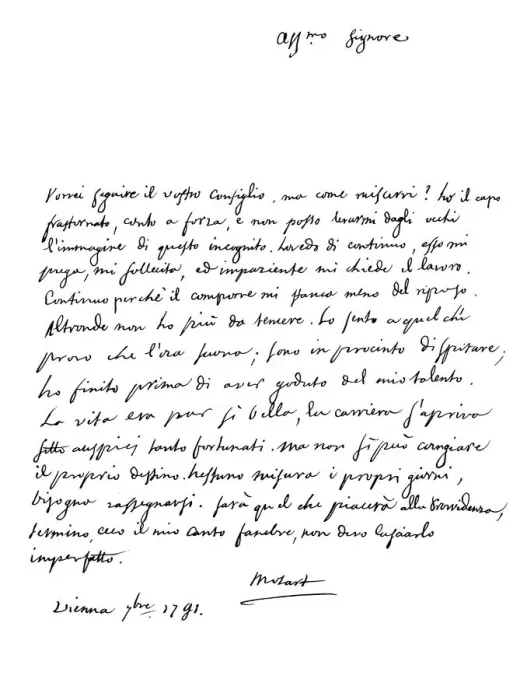 Affmo Signore
Vorrei seguire il vostro Consiglio, ma come riuscirvi? ho il capo
frastornato, conto a forza, e non posso levarmi dagli occhi
l'immagine di questo incognito. Lo vedo di continuo, esso mi
prega, mi sollecita, ed impaziente mi chiede il lavoro.
Continuo perchè il comporre mi stanca meno del riposo.
Altronde non ho più da temere. Lo sento a quel che
provo che l'ora suona; sono in procinto di spirare;
ho finito prima di aver goduto del mio talento.
La vita era pur sì bella, la carriera s'apriva
sotto auspici tanto fortunati. Ma non si può cangiare
il proprio destino. Nessuno misura i propri giorni,
bisogna rassegnarsi. sarà quel che piacerà alla Provvidenza,
termino, ecco il mio canto funebre, non devo lasciarlo
imperfetto.
Mozart
Vienna 7bre 1791.